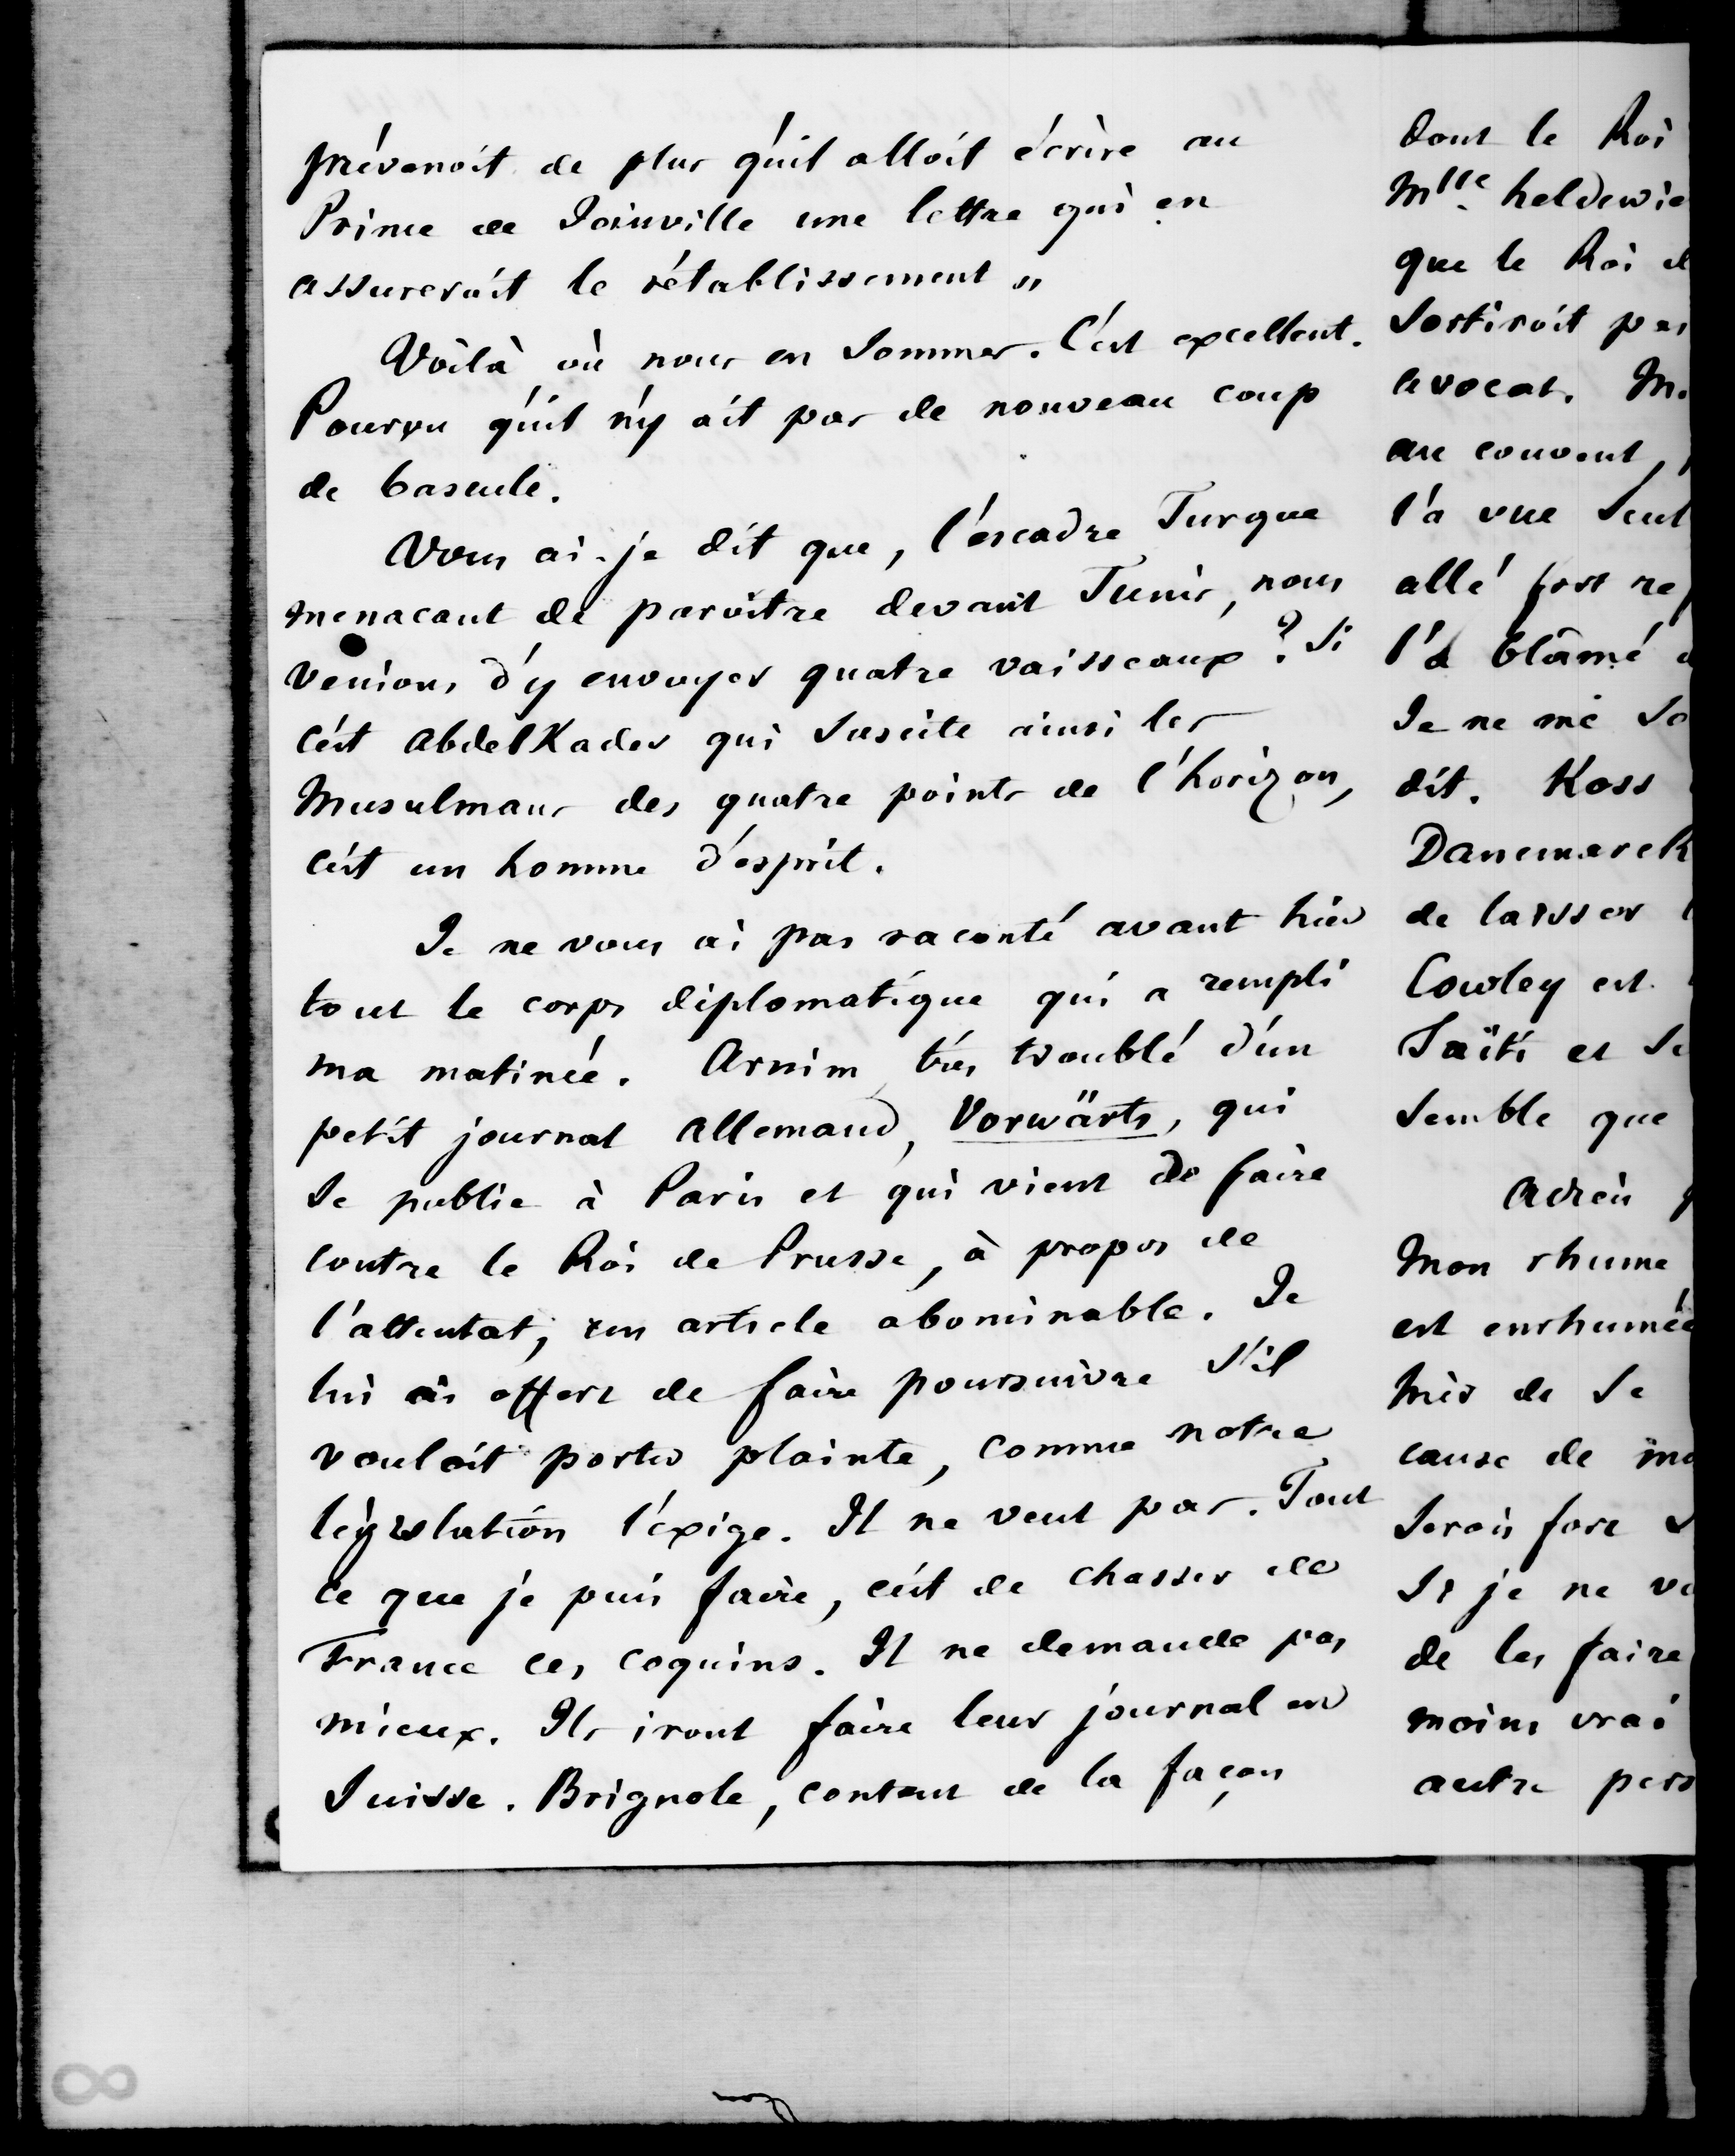 prévenoit de plus qu'il alloit écrire au
Prince de Joinville une lettre qui en
assureroit le rétablissement "
Voilà où nous en sommes. C'est excellent.
Pourvu qu'il n'y ait pas de nouveau coup
de bascule.
Vous ai-je dit que, l'escadre Turque
menacant de paroitre devant Tunis, nous
venions d'y envoyer quatre vaisseaux ? Si
c'est AbdelKader qui suscite ainsi les
Musulmans des quatre points de l'horizon,
c'est un homme d'esprit.
Je ne vous ai pas raconté avant hier
tout le corps diplomatique qui a rempli
ma matinée. Arnim très troublé d'un
petit journal allemand, Vorwärts, qui
se publie à Paris et qui vient de faire
contre le Roi de Prusse, à propos de
l'attentat, un article abominable. Je
lui ai offert de faire poursuivre s'il
vouloit porter plainte, comme notre
législation l'exige. Il ne veut pas. Tout
ce que je puis faire, c'est de chasser de
France ces coquins. Il ne demande pas
mieux. Ils iront faire leur journal en
Suisse. Brignole, content de la façon
dont le Roi
Mlle heldewie
que le Roi d
sortiroit pas
avocat. M.
au couvent,
l'a vue seul
allé fort re
l'a blâmé
Je ne me so
dit. Koss
Danemarck
de laisser
Cowley est
Taïti et se
semble que
Adieu
Mon rhume
est enrhumée
hier de se
cause de mo
serois fort
si je ne vo
de les faire
moins vrai
autre pers
8